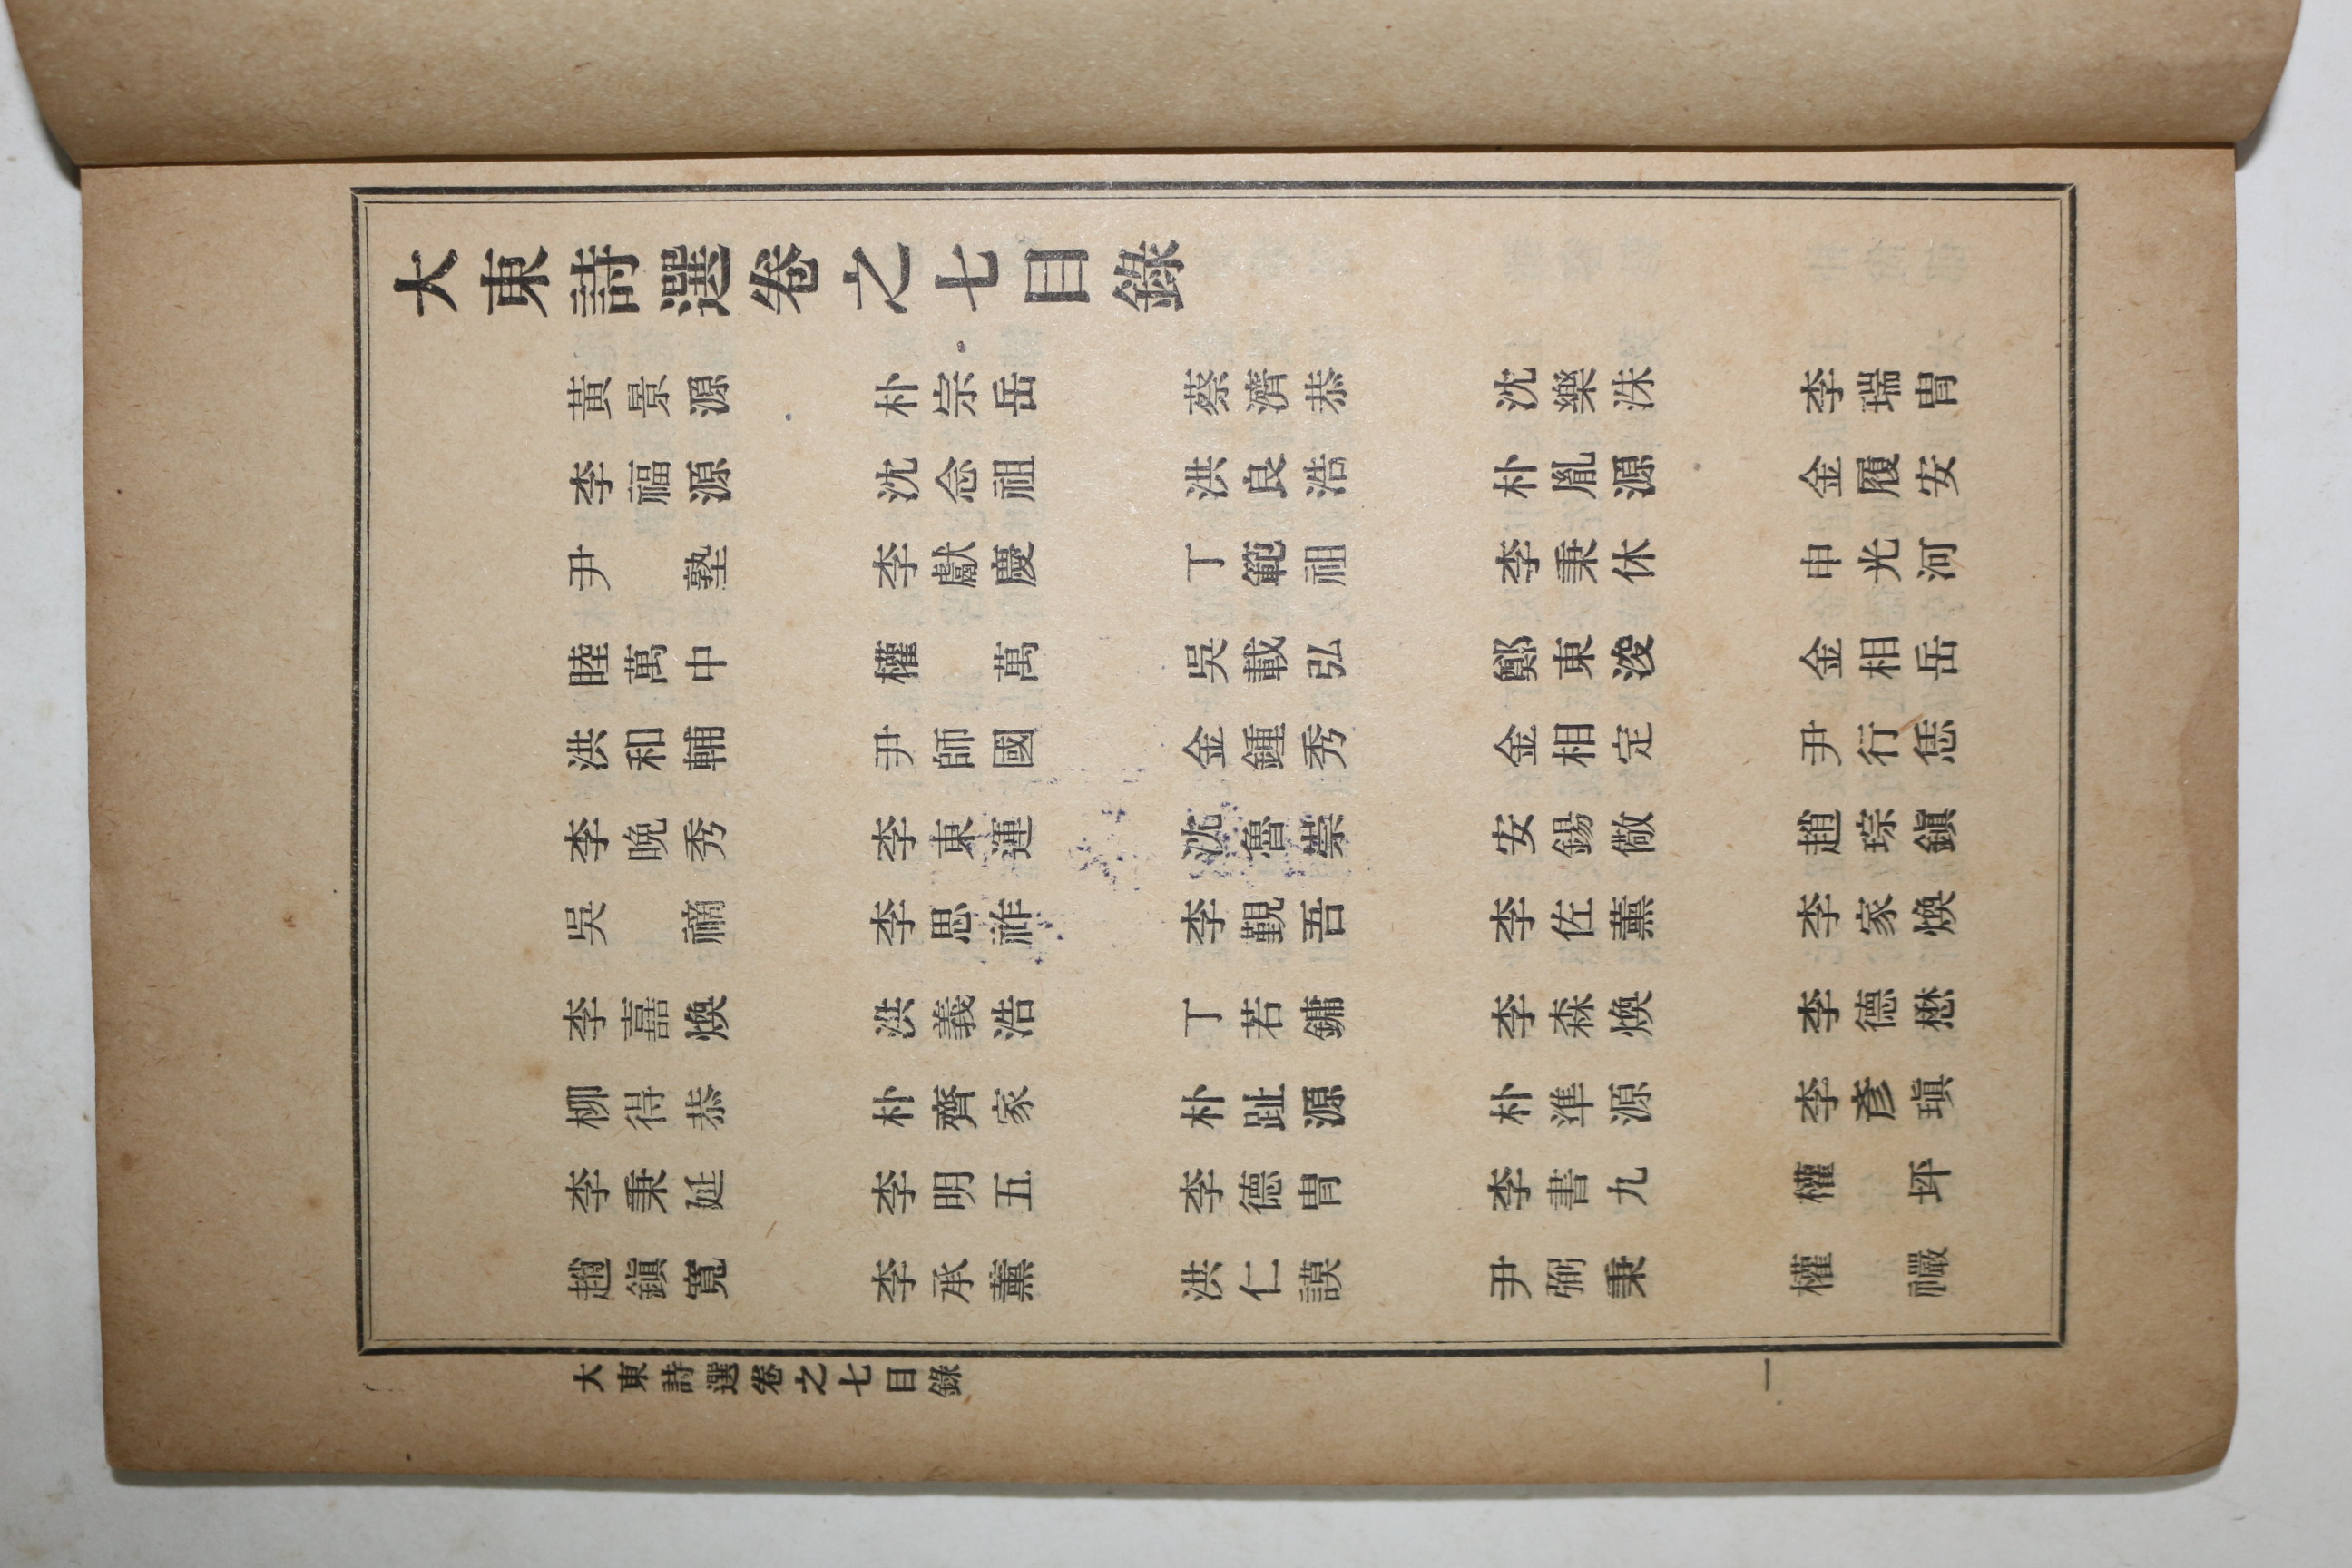 大東詩選卷之七目錄
黃景源 朴宗岳 蔡濟恭 沈樂洙 李瑞冑
李福源 沈念祖 洪良浩 朴胤源 金履安
尹塾 李獻慶 丁範祖 李秉休 申光河
睦萬中 權萬 吳載弘 鄭東浚 金相岳
洪和輔 尹師國 金鍾秀 金相定 尹行恁
李晩秀 李東運 沈魯崇 安錫儆 趙琮鎭
吳䄠 李思祚 李覲吾 李佐薰 李家煥
李嘉煥 洪義浩 丁若鏞 李森煥 李德懋
柳得恭 朴齊家 朴趾源 朴準源 李彥瑱
李秉延 李明五 李德冑 李書九 權坪
趙鎭寬 李承薰 洪仁謨 尹弼秉 權襹
大東詩選卷之七目錄
一